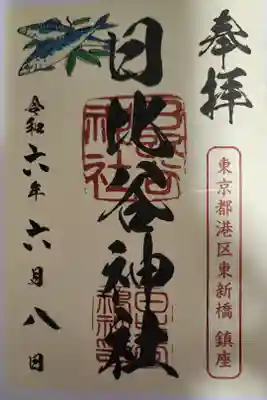 奉拝
東京都港区東新橋 鎮座
日比谷神社
令和六年六月八日